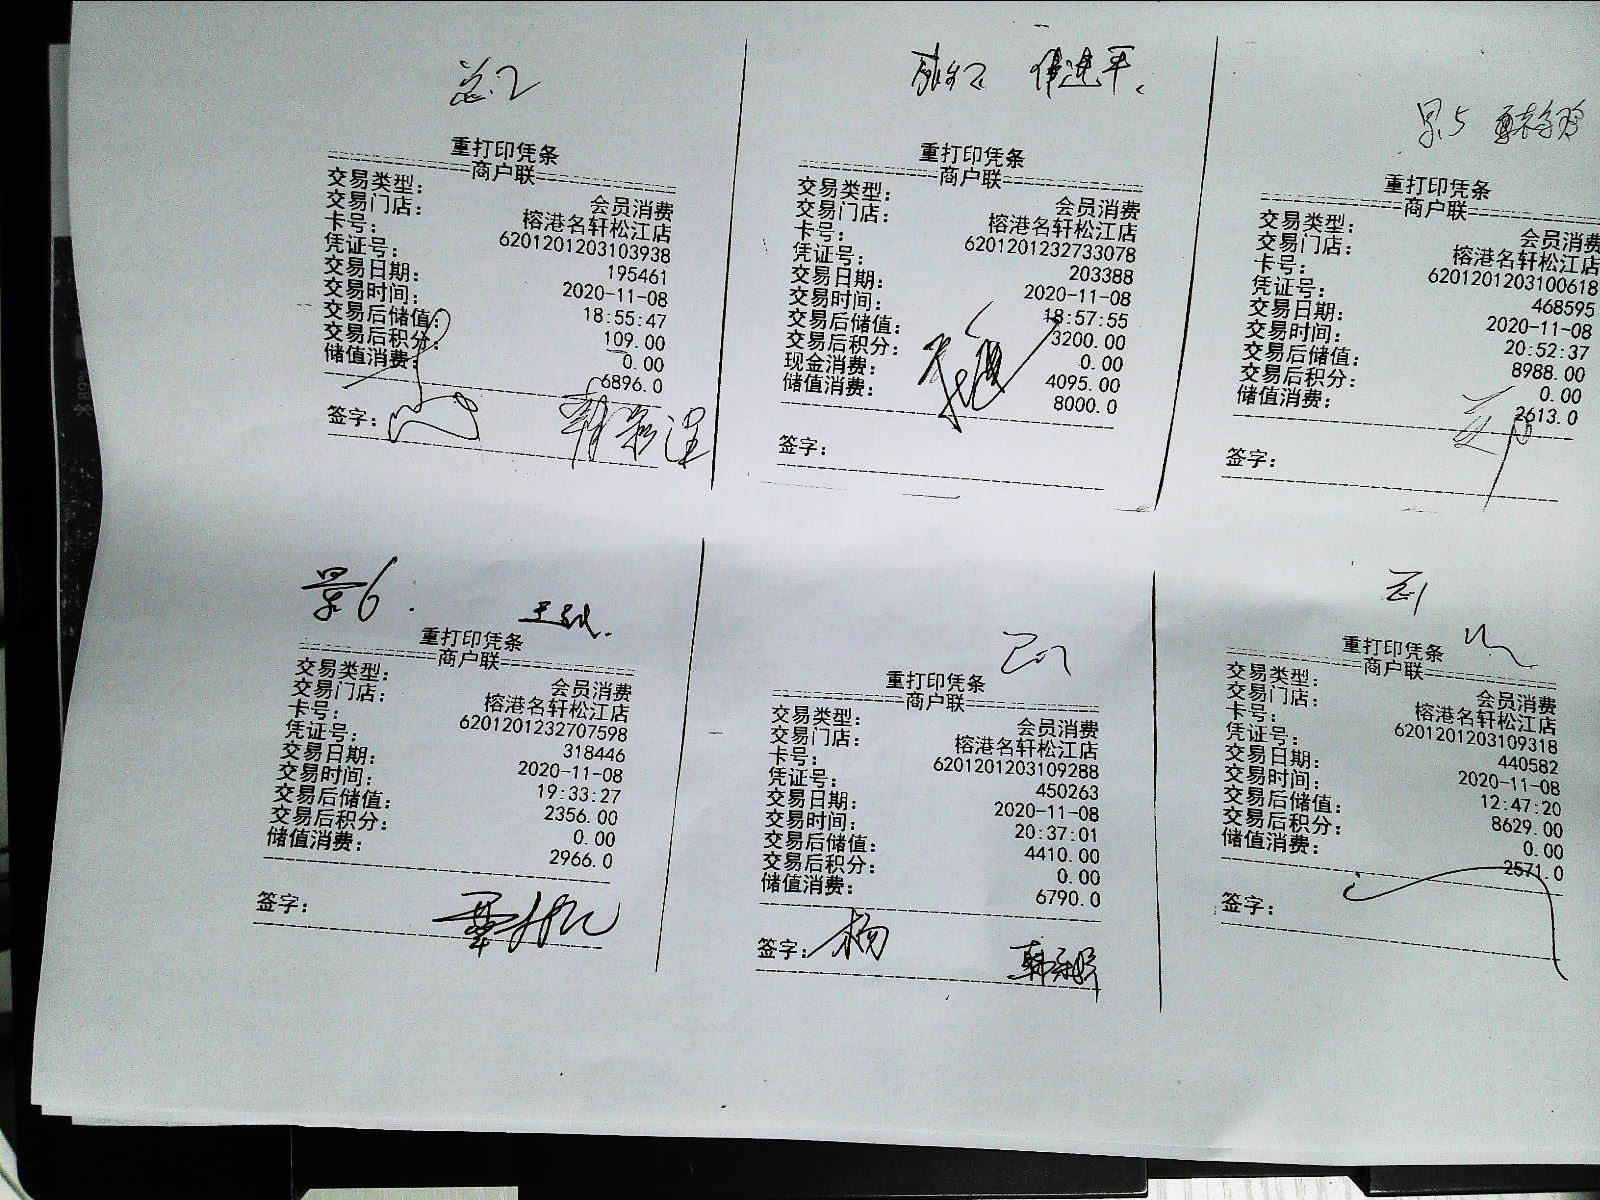 重打印凭条
商户联
交易类型: 会员消费
交易门店: 榕港名轩松江店
卡号: 6201201203103938
凭证号: 195461
交易日期: 2020-11-08
交易时间: 18:55:47
交易后储值: 109.00
交易后积分: 0.00
储值消费: 6896.0
签字:
重打印凭条
商户联
交易类型: 会员消费
交易门店: 榕港名轩松江店
卡号: 6201201232733078
凭证号: 203388
交易日期: 2020-11-08
交易时间: 18:57:55
交易后储值: 3200.00
交易后积分: 0.00
现金消费: 4095.00
储值消费: 8000.0
签字:
重打印凭条
商户联
交易类型: 会员消费
交易门店: 榕港名轩松江店
卡号: 6201201203100618
凭证号: 468595
交易日期: 2020-11-08
交易时间: 20:52:37
交易后储值: 8988.00
交易后积分: 0.00
储值消费: 2613.0
签字:
景6.
重打印凭条
商户联
交易类型: 会员消费
交易门店: 榕港名轩松江店
卡号: 6201201232707598
凭证号: 318446
交易日期: 2020-11-08
交易时间: 19:33:27
交易后储值: 2356.00
交易后积分: 0.00
储值消费: 2966.0
签字:
重打印凭条
商户联
交易类型: 会员消费
交易门店: 榕港名轩松江店
卡号: 6201201203109288
凭证号: 450263
交易日期: 2020-11-08
交易时间: 20:37:01
交易后储值: 4410.00
交易后积分: 0.00
储值消费: 6790.0
签字: 杨
重打印凭条
商户联
交易类型: 会员消费
交易门店: 榕港名轩松江店
卡号: 6201201203109318
凭证号: 440582
交易日期: 2020-11-08
交易时间: 12:47:20
交易后储值: 8629.00
交易后积分: 0.00
储值消费: 2571.0
签字: